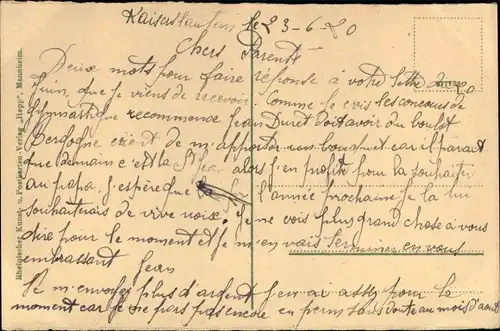 Kaiserslautern le 23-6-20
Chers Parents
Deux mots pour faire réponse à votre lettre du 20
Juin, que je viens de recevoir. Comme je vois les concours de
Gymnastique recommence Jean Duret doit avoir du boulot
vient de m'apporter un bouquet car il parait
que demain c'est la St Jean alors j'en profite pour la souhaiter
au papa, j'espère que l'année prochaine je la lui
souhaiterais de vive voix. Je ne vois plus grand chose a vous
dire pour le moment et je m'en vais terminer en vous
embrassant Jean
Ne m'envoyer plus d'argent j'en ai assez pour le
moment car je ne pars pas encore en perm sans doute au mois d'aout
Rheinischer Kunst- u. Postkarten-Verlag „Hepp“, Mannheim.